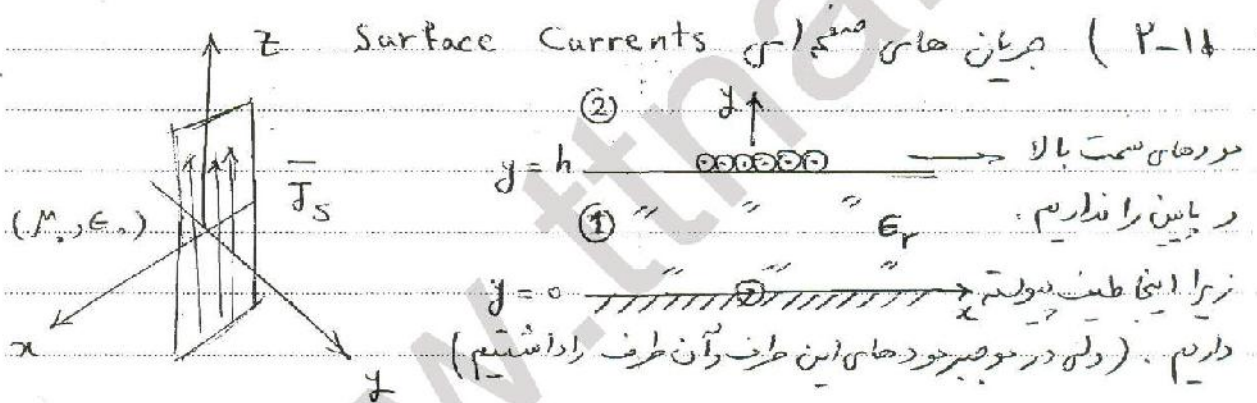 ۲-۱۱) جریان های صفحه ای Surface Currents
z
② y
y = h مودهای سمت بالا
J̄s
(μ₀, ε₀) ① εr و پایین را نداریم.
y = 0 x زیرا اینجا طیف پیوسته
x داریم. (ولی در موجبر مودهای این طرف و آن طرف را داشتیم)
y